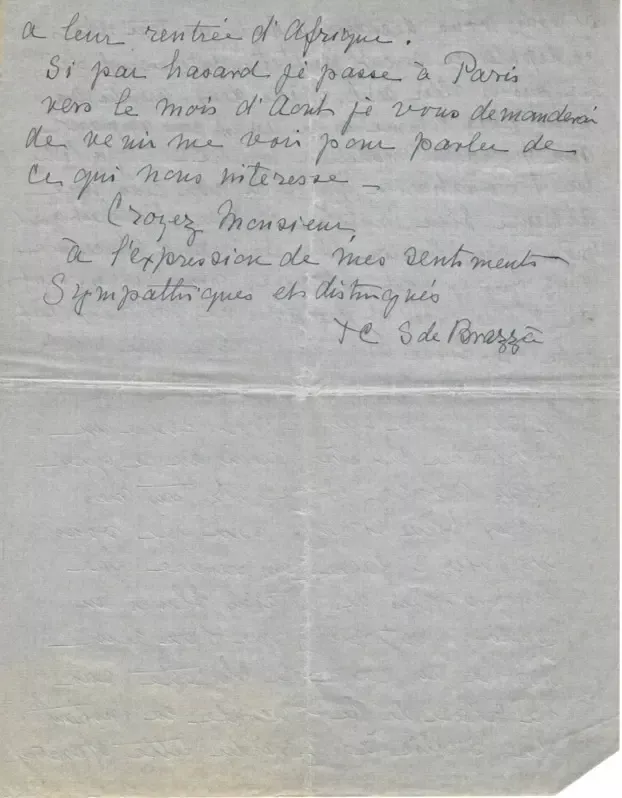 a leur rentrée d'Afrique.
Si par hasard je passe à Paris
vers le mois d'Aout je vous demanderai
de venir me voir pour parler de
ce qui nous interesse –
Croyez Monsieur,
à l'expression de mes sentiments
Sympathiques et distingués
TC S de Brazzà